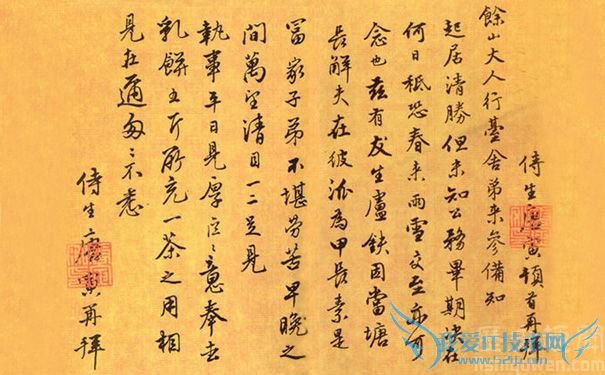 侍生唐寅頓首再拜
餘山大人行臺舍弟來參備知
起居清勝但未知公務畢期决在
何日秪恐春來雨雪交至亦可
念也茲有友生盧鈇因當塘
長解夫在彼派為甲長素是
富家子弟不堪勞苦早晚之
間萬望清目一二足見
執事平日見厚區〻意奉去
乳餅五斤所充一茶之用相
見在邇匆〻不悉
侍生唐寅再拜
我爱IT技术网